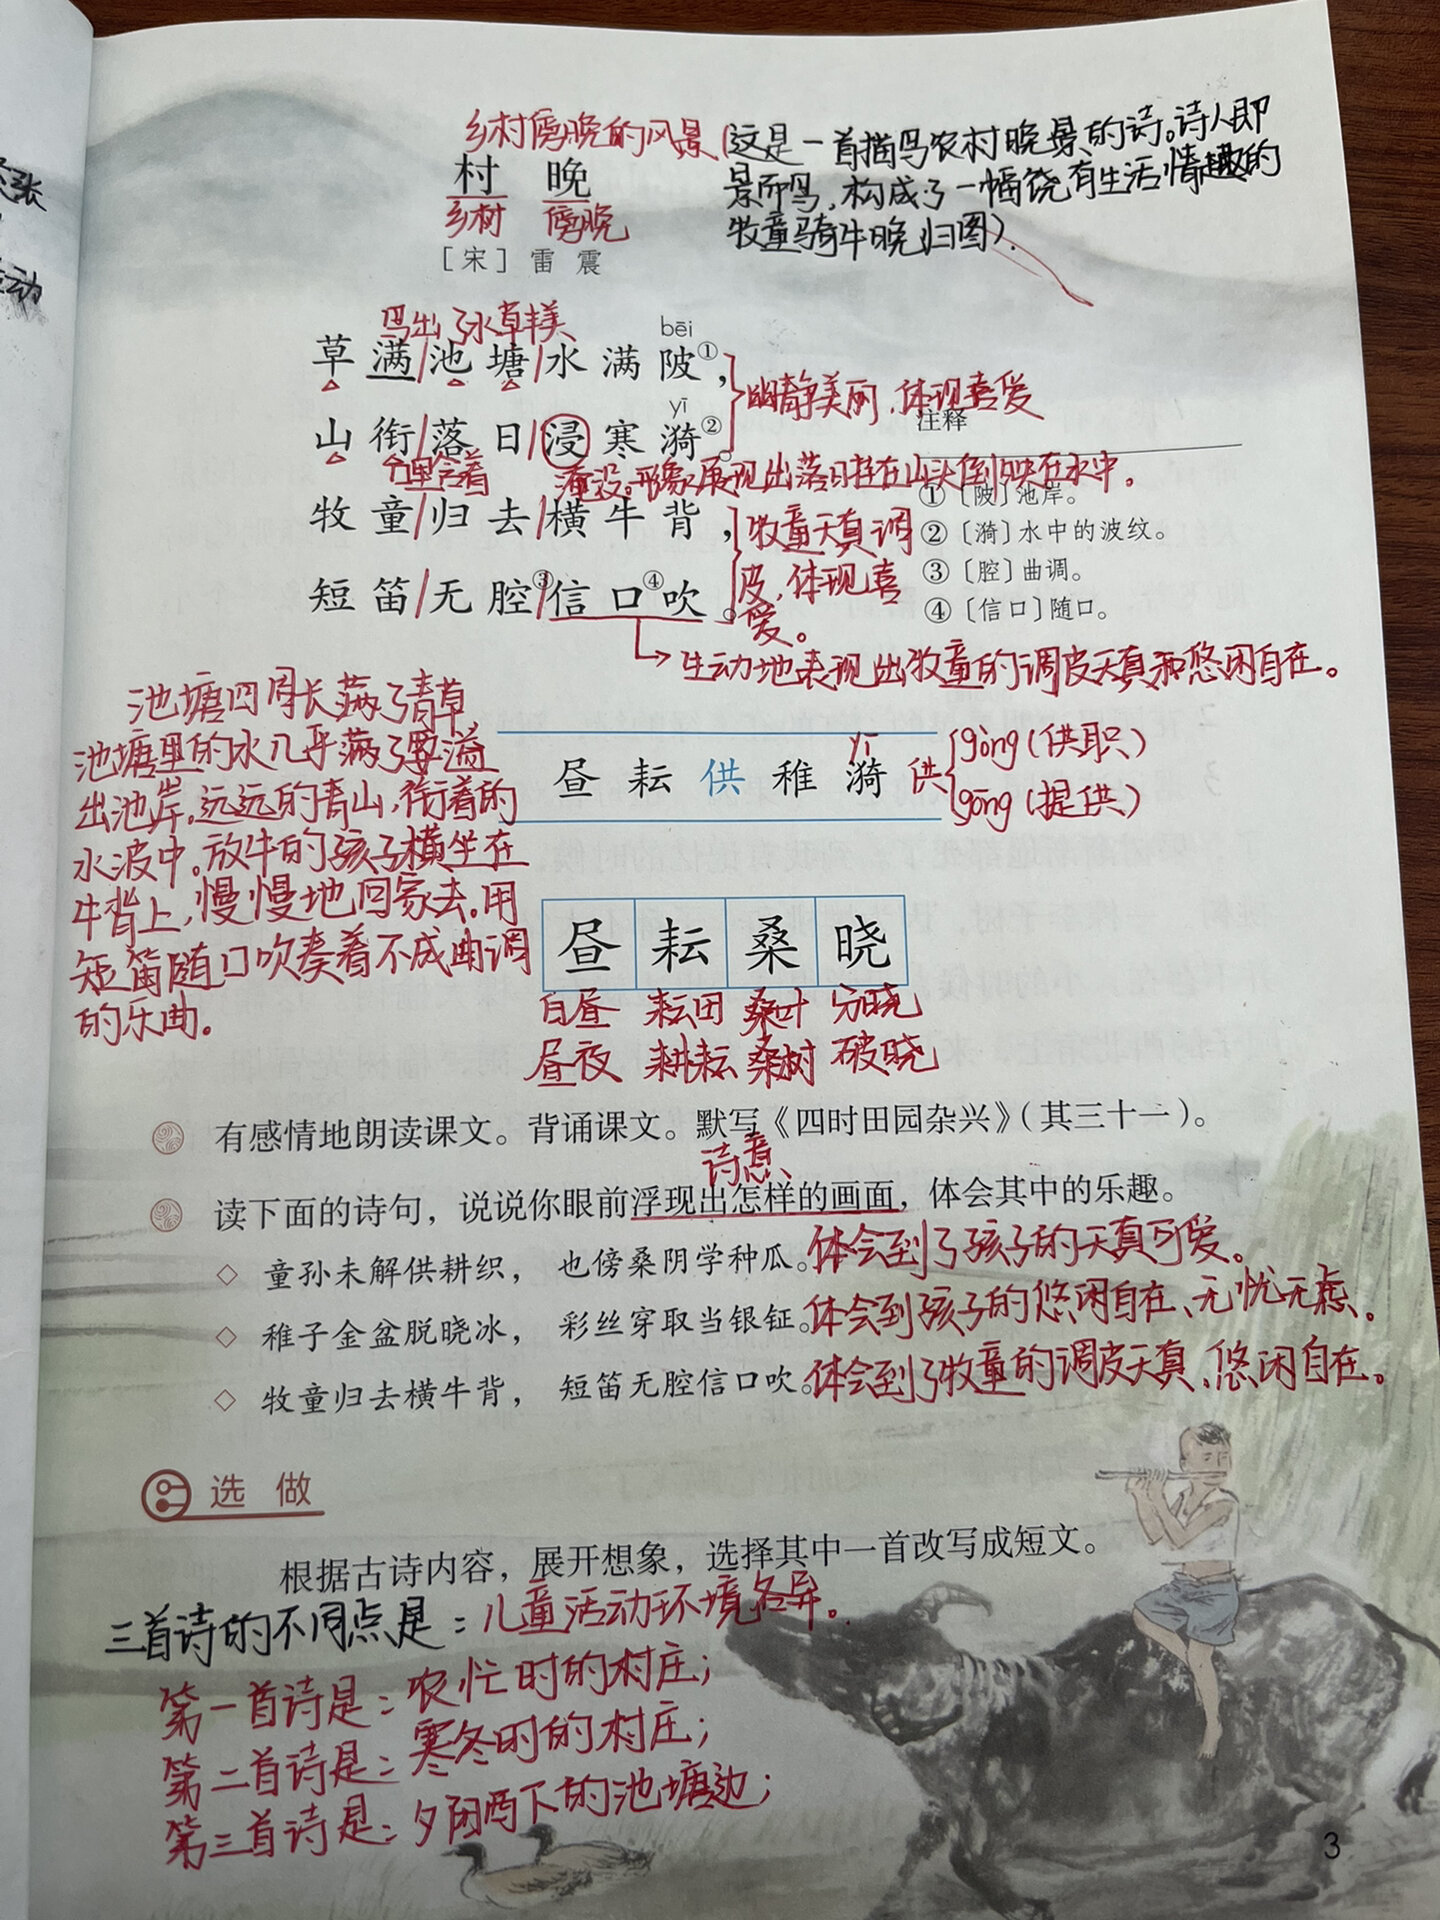 张
动
乡村傍晚的风景
(这是一首描写农村晚景的诗。诗人即
景而写，构成了一幅饶有生活情趣的
牧童骑牛晚归图).
村 晚
乡村 傍晚
［宋］雷 震
写出了水草丰美
bēi
草满/池塘/水满陂①，
幽静美丽，体现喜爱
yī
山衔/落日/浸寒漪②。
注释
口里含着 淹没。形象展现出落日挂在山头倒映在水中。
①〔陂〕池岸。
牧童/归去/横牛背，
牧童天真调
皮，体现喜
爱。
②〔漪〕水中的波纹。
③〔腔〕曲调。
短笛/无腔③/信口④吹。
④〔信口〕随口。
生动地表现出牧童的调皮天真和悠闲自在。
池塘四周长满了青草，
池塘里的水几乎满了要溢
出池岸。远远的青山，衔着的
水波中。放牛的孩子横坐在
牛背上，慢慢地回家去。用
短笛随口吹奏着不成曲调
的乐曲。
yī
昼 耘 供 稚 漪
供{gòng(供职)
gōng(提供)
昼 耘 桑 晓
白昼 耘田 桑叶 分晓
昼夜 耕耘 桑树 破晓
有感情地朗读课文。背诵课文。默写《四时田园杂兴》（其三十一）。
诗意、
读下面的诗句，说说你眼前浮现出怎样的画面，体会其中的乐趣。
◇ 童孙未解供耕织， 也傍桑阴学种瓜。体会到了孩子的天真可爱。
◇ 稚子金盆脱晓冰， 彩丝穿取当银钲。体会到孩子的悠闲自在、无忧无虑。
◇ 牧童归去横牛背， 短笛无腔信口吹。体会到了牧童的调皮天真、悠闲自在。
选 做
根据古诗内容，展开想象，选择其中一首改写成短文。
三首诗的不同点是：儿童活动环境各异。
第一首诗是：农忙时的村庄；
第二首诗是：寒冬时的村庄；
第三首诗是：夕阳西下的池塘边；
3